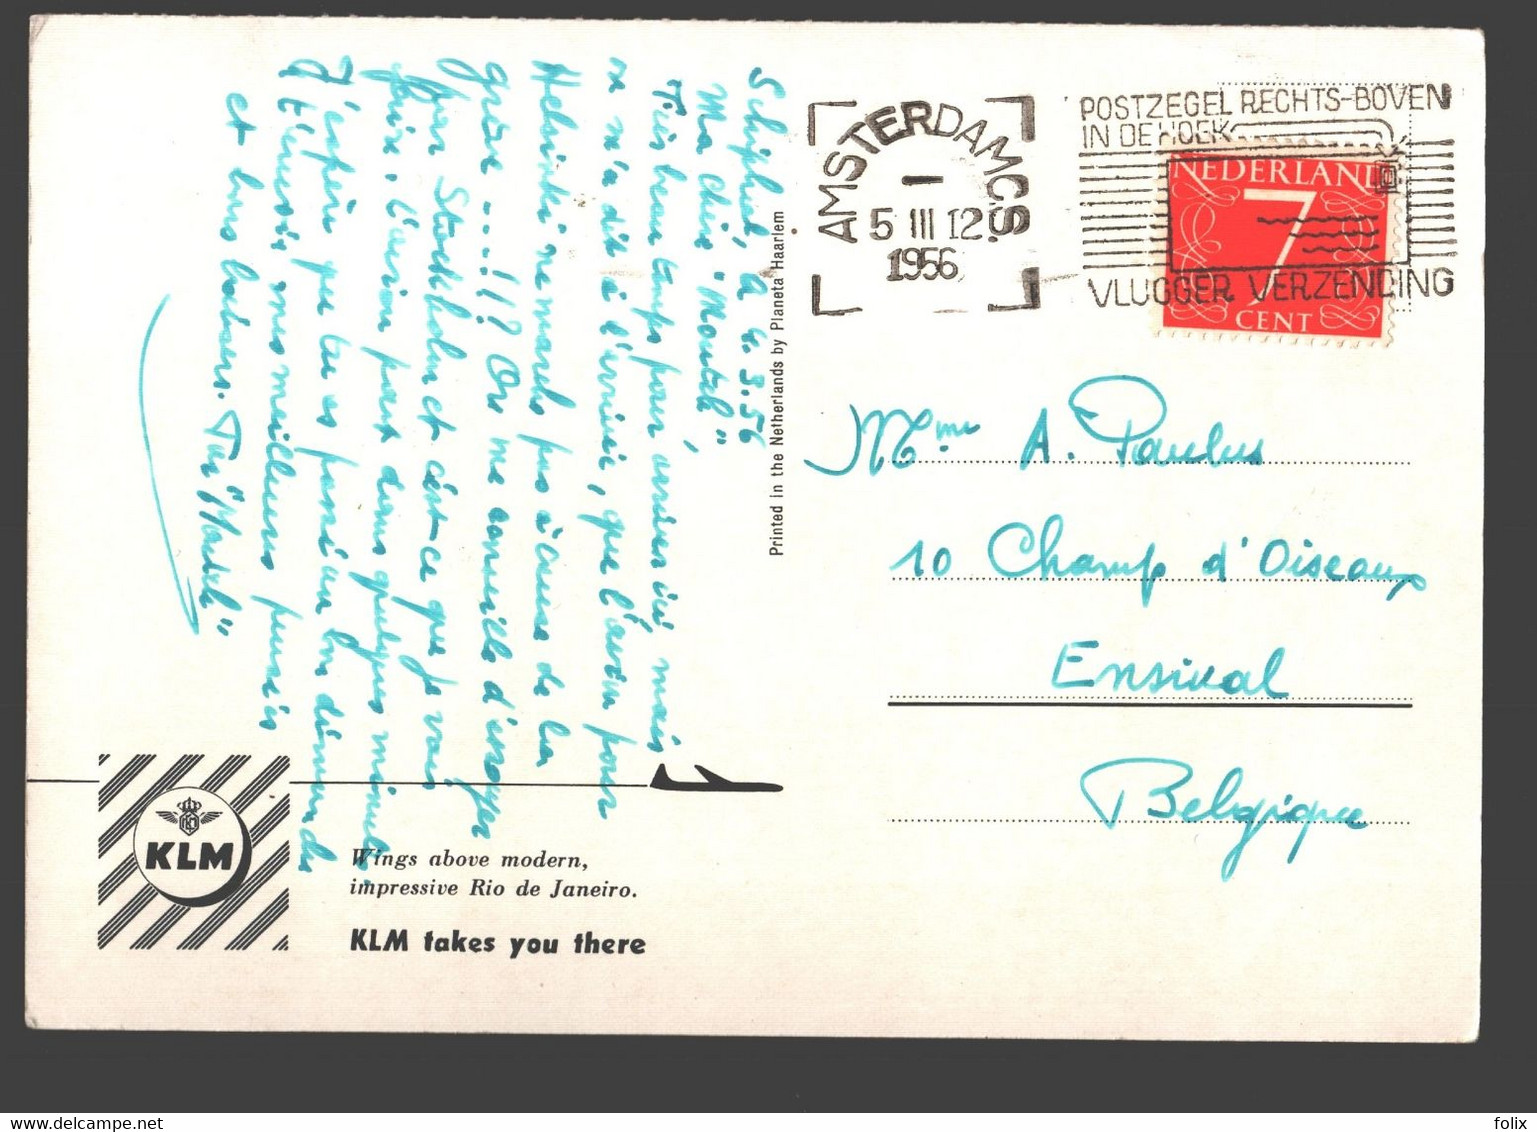 Schiphol, le 4.3.56
Ma chère "Moutch",
Très beau temps pour arriver ici mais
on m'a dit à l'arrivée, que l'avion pour
Helsinki ne marche pas à cause de la
grève ...!!? On me conseille d'essayer
par Stockholm et c'est-ce que je vais
faire. L'avion part dans quelques minutes.
J'espère que tu as passé un bon dimanche
et t'envoie mes meilleures pensées
et bons baisers. Ta "Moutch"
Printed in the Netherlands by Planeta Haarlem
AMSTERDAM C.S.
5 III 12
1956
POSTZEGEL RECHTS-BOVEN
IN DE HOEK
VLUGGER VERZENDING
NEDERLAND
7
CENT
Mme A. Paulus
10 Champ d'Oiseaux
Ensival
Belgique
KLM
Wings above modern,
impressive Rio de Janeiro.
KLM takes you there
folix